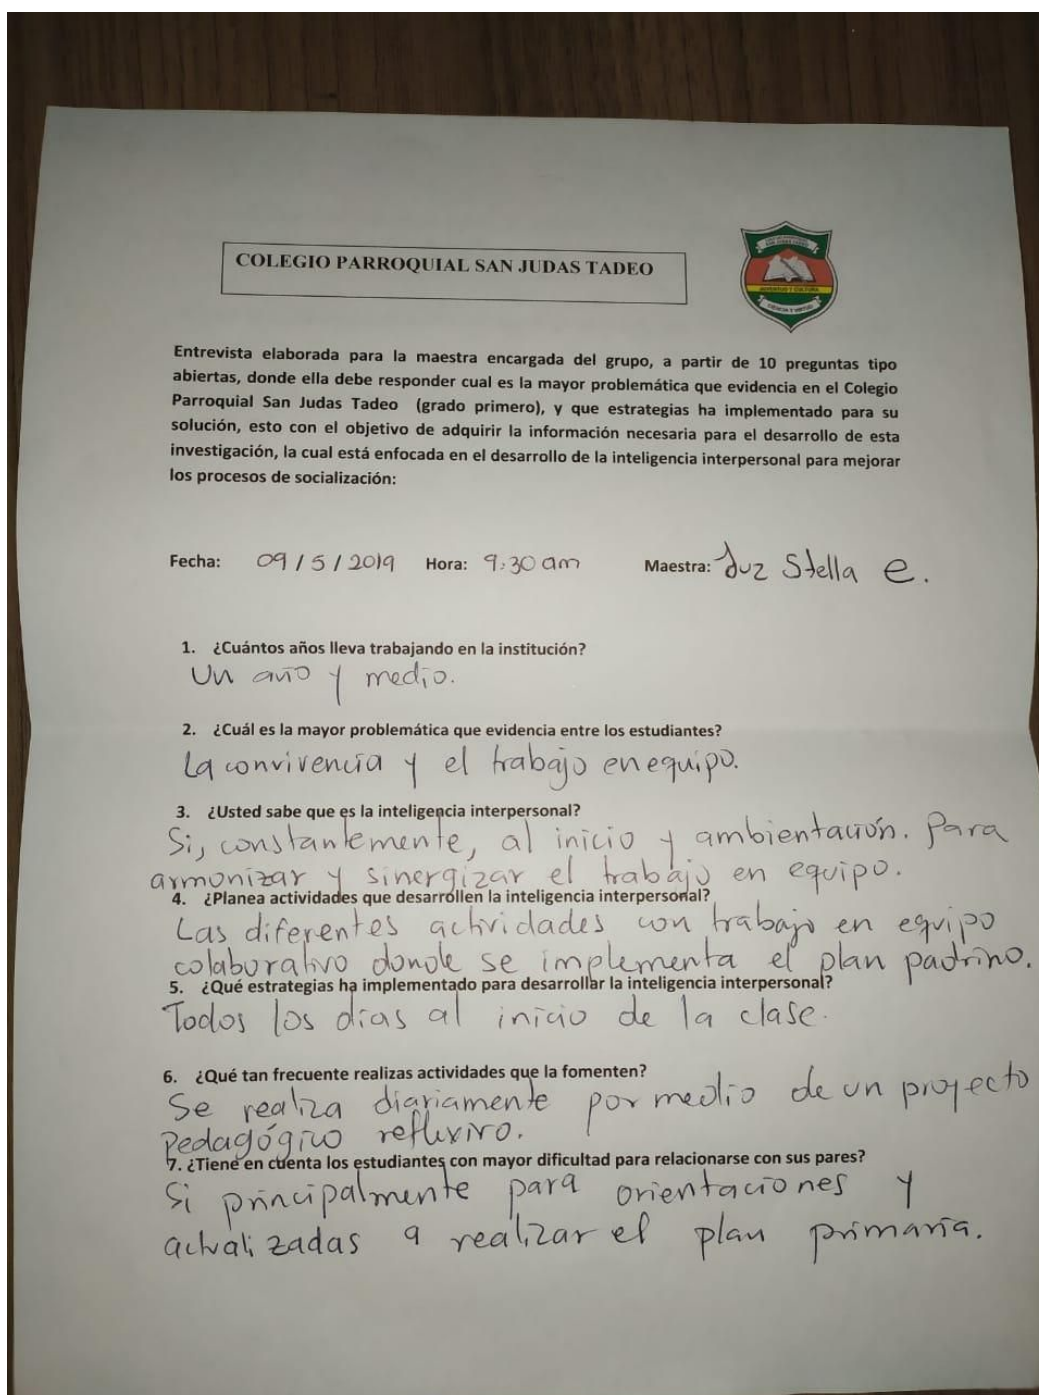 COLEGIO PARROQUIAL SAN JUDAS TADEO
JUVENTUD Y CULTURA
CIENCIA Y VIRTUD
Entrevista elaborada para la maestra encargada del grupo, a partir de 10 preguntas tipo
abiertas, donde ella debe responder cual es la mayor problemática que evidencia en el Colegio
Parroquial San Judas Tadeo (grado primero), y que estrategias ha implementado para su
solución, esto con el objetivo de adquirir la información necesaria para el desarrollo de esta
investigación, la cual está enfocada en el desarrollo de la inteligencia interpersonal para mejorar
los procesos de socialización:
Fecha: 09 / 5 / 2019 Hora: 9:30 am Maestra: Luz Stella e.
1. ¿Cuántos años lleva trabajando en la institución?
Un año y medio.
2. ¿Cuál es la mayor problemática que evidencia entre los estudiantes?
La convivencia y el trabajo en equipo.
3. ¿Usted sabe que es la inteligencia interpersonal?
Si, constantemente, al inicio y ambientación. Para
armonizar y sinergizar el trabajo en equipo.
4. ¿Planea actividades que desarrollen la inteligencia interpersonal?
Las diferentes actividades con trabajo en equipo
colaborativo donde se implementa el plan padrino.
5. ¿Qué estrategias ha implementado para desarrollar la inteligencia interpersonal?
Todos los días al inicio de la clase.
6. ¿Qué tan frecuente realizas actividades que la fomenten?
Se realiza diariamente por medio de un proyecto
Pedagógico reflexivo.
7. ¿Tiene en cuenta los estudiantes con mayor dificultad para relacionarse con sus pares?
Si principalmente para orientaciones y
actualizadas a realizar el plan primaria.